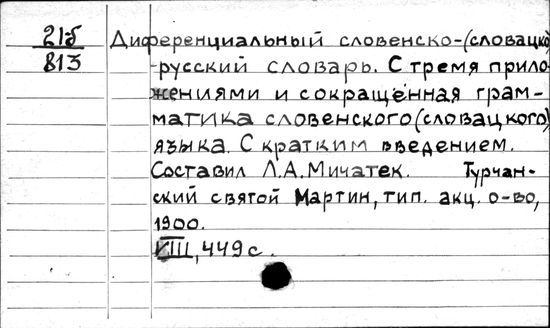 21б Диференциальный словенско-(словацко)
813 -русский словарь. С тремя прило-
жениями и сокращенная грам-
матика словенского (словацкого)
языка. С кратким введением.
Составил Л.А. Мичатек. Турчан-
ский святой Мартин, тип. акц. о-во,
1900.
VIII, 449 с.